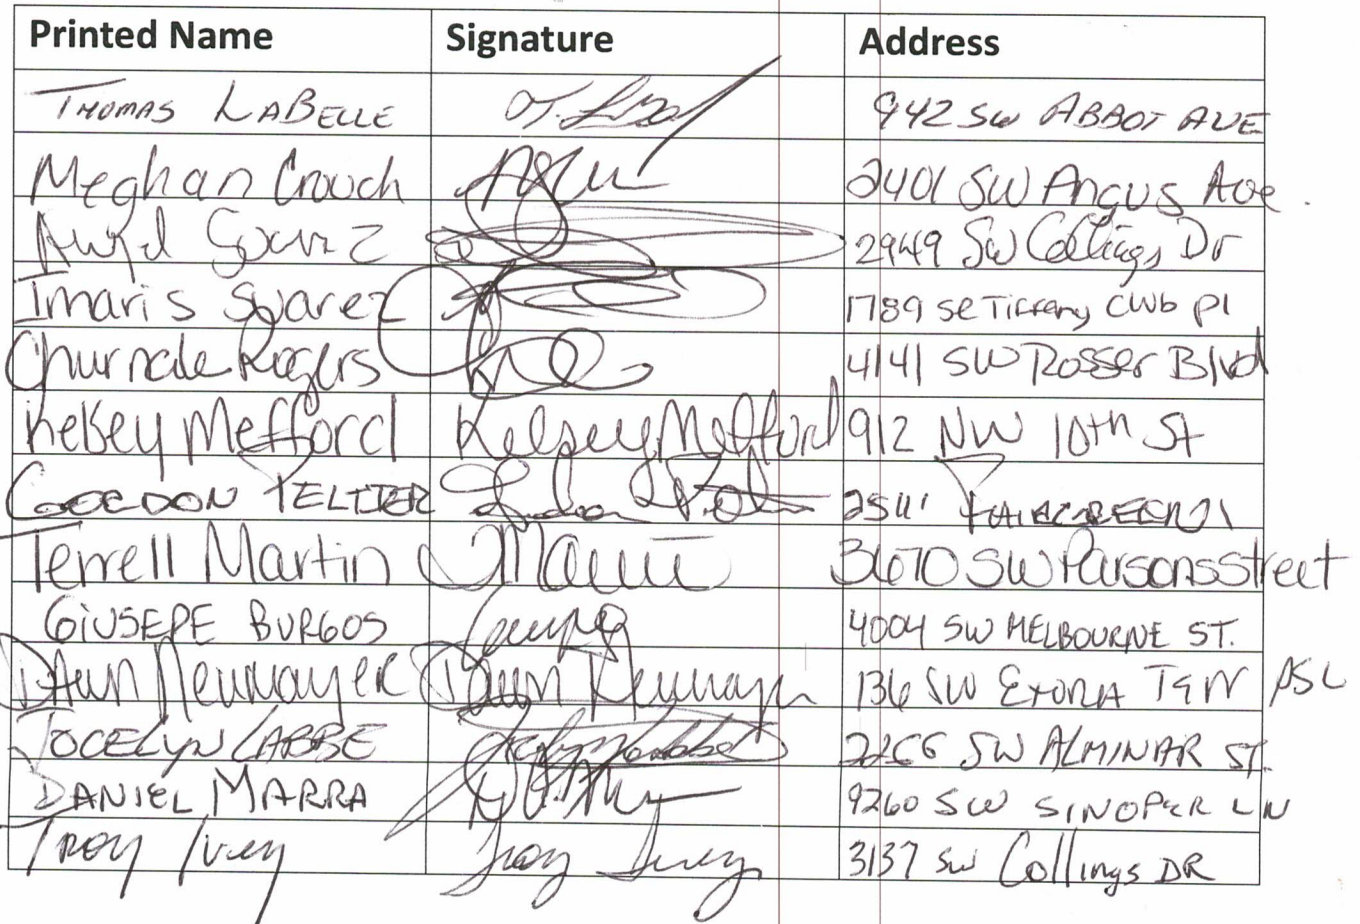 Printed Name Signature Address
THOMAS LABELLE 942 SW ABBOT AVE
Meghan Crouch 2401 SW Angus Ave.
2949 SW Collings Dr
Imaris Suarez 1789 SE Tiffany Club Pl
Rogers 4141 SW Rosser Blvd
Kelsey Mefford Kelsey Mefford 912 NW 10th St
GORDON PELTIER
Terrell Martin 3670 SW Parsons Street
GiUSEPE BURGOS 4004 SW MELBOURNE ST.
Dawn Neumayer Dawn Neumayer 136 SW PSL
JOCELYN LABBE 2266 SW ALMINAR ST.
DANIEL MARRA 9260 SW SINOPER LN
Troy Ivey Troy Ivey 3137 SW Collings DR